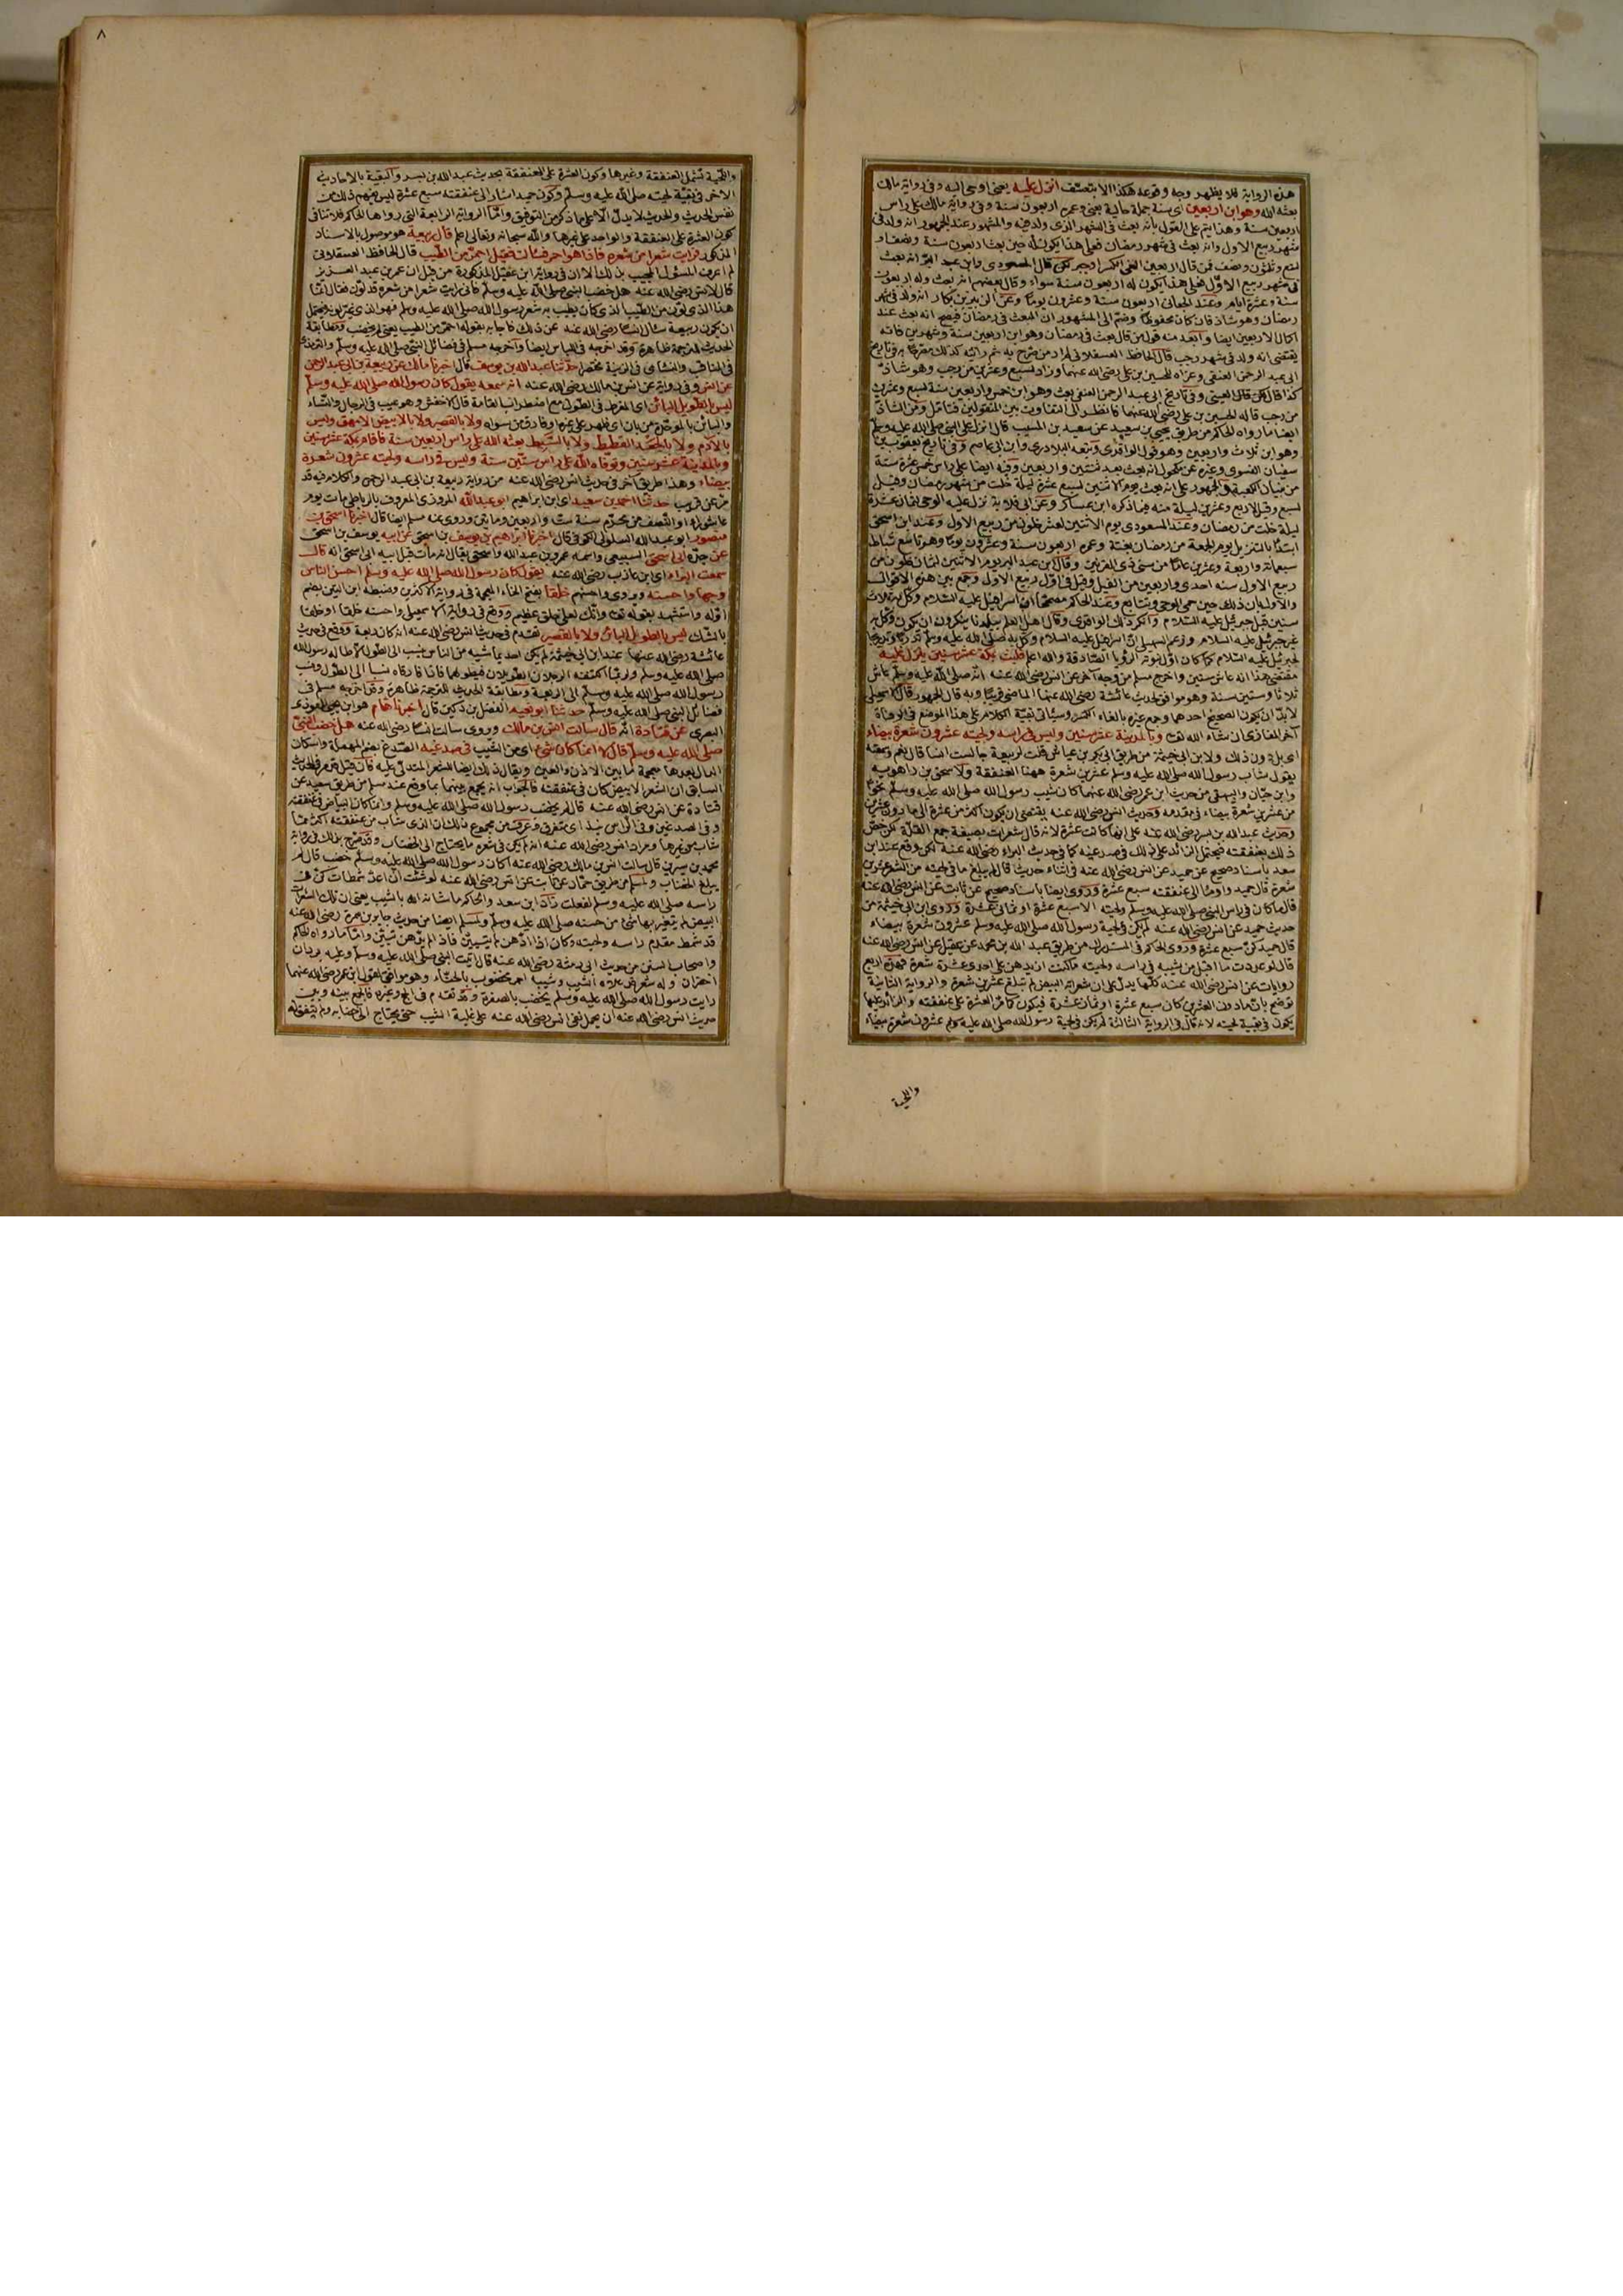 هذه الرواية فلا يظهر وجه وقوعه هكذا الا بتعسّف انزل عليه يعني اوحي اليه وفي رواية مالك
بعثه الله وهو ابن اربعين اي سنة جملة حالية يعني وعمره اربعون سنة وفي رواية مالك على راس
اربعين سنة وهذا يتم على القول بأنه بعث في الشهر الذي ولد فيه والمشهور عند الجمهور انه ولد في
شهر ربيع الاول وانه بعث في شهر رمضان فعلى هذا يكون له حين بعث اربعون سنة ونصف او
تسع وثلثون ونصف فمن قال اربعين الغى الكسر او جبر لكن قال المسعودي وابن عبد البرّ انه بعث
في شهر ربيع الاوّل فعلى هذا يكون له اربعون سنة سواء وقال بعضهم انه بعث وله اربعون
سنة وعشرة ايام وعند الجعابي اربعون سنة وعشرون يوما وعن الزبير بن بكار انه ولد في شهر
رمضان وهو شاذ فان كان محفوظا وضم الى المشهور ان المبعث في رمضان فيصح انه بعث عند
اكمال الاربعين ايضا وأبعد منه قول من قال بعث في رمضان وهو ابن اربعين سنة وشهرين فانه
يقتضي انه ولد في شهر رجب قال الحافظ العسقلاني لم ار من صرح به ثم رأيته كذلك مصرّحا به في تاريخ
ابي عبد الرحمن العتقي وعزاه للحسين بن علي رضي الله عنهما وزاد لسبع وعشرين من رجب وهو شاذّ
كذا قال لكن قال العيني وفي تاريخ ابي عبد الرحمن العتقي بعث وهو ابن خمس واربعين سنة لسبع وعشرين
من رجب قاله الحسين بن علي رضي الله عنهما فانظر الى التفاوت بين المنقولين فتأمل ومن الشاذّ
ايضا ما رواه الحاكم من طريق يحيى بن سعيد عن سعيد بن المسيب قال انزل على النبي صلى الله عليه وسلم
وهو ابن ثلاث واربعين وهو قول الواقدي وتبعه البلاذري وابن ابي عاصم وفي تاريخ يعقوب بن
سفيان الفسوي وغيره عن مكحول انه بعث بعد ثنتين واربعين وفيه ايضا على راس خمس عشرة سنة
من بنيان الكعبة والجمهور على انه بعث يوم الاثنين لسبع عشرة ليلة خلت من شهر رمضان وقيل
لسبع وقيل لاربع وعشرين ليلة منه فيما ذكره ابن عساكر وعن ابي قلابة نزل عليه الوحي لثمان عشرة
ليلة خلت من رمضان وعند المسعودي يوم الاثنين لعشر خلون من ربيع الاول وعند ابن اسحق
ابتدأ بالتنزيل يوم الجمعة من رمضان بغتة وعمره اربعون سنة وعشرون يوما وهو تاسع شباط
سبعمائة واربعة وعشرين عاما من سني ذي القرنين وقال ابن عبد البر يوم الاثنين لثمان خلون من
ربيع الاول سنة احدى واربعين من الفيل وقيل في اول ربيع الاول وجمع بين هذه الاقوال
والاول بأن ذلك حين حمي الوحي وتتابع وعند الحاكم مصححا ان اسرافيل عليه السلام وكل به ثلاث
سنين قبل جبرئيل عليه السلام وانكر ذلك الواقدي وقال اهل العلم ببلدنا ينكرون ان يكون وكل به
غير جبرئيل عليه السلام وزعم السهيلي انّ اسرافيل عليه السلام وكل به صلى الله عليه وسلم تدرّبا وتدريجا
لجبرئيل عليه السلام كما كان اول نبوته الرؤيا الصادقة والله اعلم فلبث بمكة عشر سنين ينزل عليه
مقتضى هذا انه عاش ستين واخرج مسلم من وجه آخر عن انس رضي الله عنه انه صلى الله عليه وسلم عاش
ثلاثا وستين سنة وهو موافق لحديث عائشة رضي الله عنها الماضي قريبا وبه قال الجمهور قال الاسمعيلي
لا بدّ ان يكون الصحيح احدهما وجمع غيره بالغاء الكسر وسيأتي بقية الكلام على هذا الموضع في الوفاة
آخر المغازي ان شاء الله تعالى وبالمدينة عشر سنين وليس في راسه ولحيته عشرون شعرة بيضاء
اي بل دون ذلك ولابن ابي خيثمة من طريق ابي بكر بن عياش قلت لربيعة جالست انسا قال نعم وسمعته
يقول شاب رسول الله صلى الله عليه وسلم عشرين شعرة ههنا العنفقة ولاسحق بن راهويه
وابن حبان والبيهقي من حديث ابن عمر رضي الله عنهما كان شيب رسول الله صلى الله عليه وسلم نحوا
من عشرين شعرة بيضاء في مقدمه وحديث انس رضي الله عنه يقتضي ان يكون اكثر من عشرة الى ما دون عشرين
وحديث عبد الله بن بسر رضي الله عنه على انها كانت عشرة لانه قال شعرات بصيغة جمع القلة لكن خصّ
ذلك بعنفقته فيحتمل الزائد على ذلك في صدغيه كما في حديث البراء رضي الله عنه لكن وقع عند ابن
سعد باسناد صحيح عن حميد عن انس رضي الله عنه في اثناء حديث قال لم يبلغ ما في لحيته من الشعر عشرين
شعرة قال حميد واومأ الى عنفقته سبع عشرة وروى ايضا باسناد صحيح عن ثابت عن انس رضي الله عنه
قال ما كان في راس النبي صلى الله عليه وسلم ولحيته الا سبع عشرة او ثماني عشرة وروى ابن ابي خيثمة من
حديث حميد عن انس رضي الله عنه لم يكن في لحية رسول الله صلى الله عليه وسلم عشرون شعرة بيضاء
قال حميد كنّ سبع عشرة وروى الحاكم في المستدرك من طريق عبد الله بن محمد بن عقيل عن انس رضي الله عنه
قال لو عددت ما اقبل من شيبه في راسه ولحيته ما كنت ازيدهن على احدى عشرة شعرة فهذه اربع
روايات عن انس رضي الله عنه كلها يدل على ان شعراته البيض لم تبلغ عشرين شعرة والرواية الثانية
توضح بانّ ما دون العشرين كان سبع عشرة او ثمان عشرة فيكون كما مرّ العشرة على عنفقته والزائد عليها
يكون في بقية لحيته لانه قال في الرواية الثالثة لم يكن في لحية رسول الله صلى الله عليه وسلم عشرون شعرة بيضاء
واللحية
٨
واللحية تشمل العنفقة وغيرها وكون العشرة على العنفقة بحديث عبد الله بن بسر والبقية بالاحاديث
الاخر في بقية لحيته صلى الله عليه وسلم وكون حميد اشار الى عنفقته سبع عشرة ليس يفهم ذلك من
نفس الحديث والحديث لا يدلّ الا على ما ذكر من التوفيق وامّا الرواية الرابعة التي رواها الحاكم فلا تنافي
كون العشرة على العنفقة والواحد على غيرها والله سبحانه وتعالى اعلم قال ربيعة هو موصول بالاسناد
المذكور فرايت شعرا من شعره فاذا هو احمر فسألت فقيل احمرّ من الطيب قال الحافظ العسقلاني
لم اعرف المسؤل المجيب بذلك الا ان في رواية ابن عقيل المذكورة من قبل ان عمر بن عبد العزيز
قال لانس رضي الله عنه هل خضب النبي صلى الله عليه وسلم فاني رايت شعرا من شعره قد لوّن فقال انّما
هذا الذي لوّن من الطيب الذي كان يطيب به شعر رسول الله صلى الله عليه وسلم فهو الذي غيّر لونه فيحتمل
ان يكون ربيعة سأل انسا رضي الله عنه عن ذلك فاجابه بقوله احمرّ من الطيب يعني لم يخضب ومطابقة
الحديث للترجمة ظاهرة وقد اخرجه في اللباس ايضا واخرجه مسلم في فضائل النبي صلى الله عليه وسلم والترمذي
في المناقب والنسائي في الزينة مختصرا حدّثنا عبد الله بن يوسف قال اخبرنا مالك عن ربيعة بن ابي عبد الرحمن
عن انس وفي رواية عن انس بن مالك رضي الله عنه انه سمعه يقول كان رسول الله صلى الله عليه وسلّم
ليس بالطويل البائن اي المفرط في الطول مع اضطراب القامة قال الاخفش وهو عيب في الرجال والنساء
والبائن بالموحّدة من بان اي ظهر على غيره او فارق من سواه ولا بالقصير ولا بالابيض الامهق وليس
بالآدم ولا بالجعد القطط ولا بالسّبط بعثه الله على راس اربعين سنة فاقام بمكة عشر سنين
وبالمدينة عشر سنين وتوفاه الله على راس ستّين سنة وليس في راسه ولحيته عشرون شعرة
بيضاء وهذا طريق آخر في حديث انس رضي الله عنه من رواية ربيعة بن ابي عبد الرحمن والكلام فيه قد
مرّ عن قريب حدثنا احمد بن سعيد اي ابن ابراهيم ابو عبدالله المروزي المعروف بالرباطي مات يوم
عاشوراء او النّصف من محرّم سنة ست واربعين ومأتين وروى عنه مسلم ايضا قال اخبرنا اسحق بن
منصور ابو عبد الله السلولي الكوفي قال اخبرنا ابراهيم بن يوسف بن اسحق عن ابيه يوسف بن اسحق
عن جدّه ابي اسحق السبيعي واسمه عمرو بن عبد الله واسحق يقال انه مات قبل ابيه ابي اسحق انه قال
سمعت البراء اي ابن عازب رضي الله عنه يقول كان رسول الله صلى الله عليه وسلم احسن الناس
وجها واحسنه ويروى واحسنهم خلقا بفتح الخاء المعجمة في رواية الاكثرين وضبطه ابن التين بضم
اوّله واستشهد بقوله تعالى وانّك لعلى خلق عظيم ووقع في رواية الاسمعيلي واحسنه خلقا او خلقا
بالشك ليس بالطويل البائن ولا بالقصير تقدم في حديث انس رضي الله عنه انه كان ربعة ووقع في حديث
عائشة رضي الله عنها عند ابن ابي خيثمة لم يكن احد يماشيه من الناس ينسب الى الطول الا طاله رسول الله
صلى الله عليه وسلم ولربّما اكتنفه الرجلان الطويلان فيطولهما فاذا فارقاه نسبا الى الطول ونسب
رسول الله صلى الله عليه وسلم الى الربعة ومطابقة الحديث للترجمة ظاهرة وقد اخرجه مسلم في
فضائل النبي صلى الله عليه وسلّم حدثنا ابو نعيم الفضل بن دكين قال اخبرنا همّام هو ابن يحيى العوذي
البصري عن قتادة انّه قال سالت انس بن مالك ويروى سالت انسا رضي الله عنه هل خضب النبيّ
صلى الله عليه وسلّم قال لا انما كان شيء اي من الشيب في صدغيه الصّدغ بضم المهملة واسكان
الدال بعدها معجمة ما بين الاذن والعين ويقال ذلك ايضا للشعر المتدلّي عليه فان قيل قد مرّ في الحديث
السابق ان الشعر الابيض كان في عنفقته فالجواب انه يجمع بينهما بما وقع عند مسلم من طريق سعيد عن
قتادة عن انس رضي الله عنه قال لم يخضب رسول الله صلى الله عليه وسلم وانما كان البياض في عنفقته
وفي الصدغين وفي الراس نبذ اي متفرق وعرف من مجموع ذلك ان الذي شاب من عنفقته اكثر ممّا
شاب من غيرها ومراد انس رضي الله عنه انه لم يكن في شعره ما يحتاج الى الخضاب وقد صرّح بذلك في رواية
محمد بن سيرين قال سالت انس بن مالك رضي الله عنه اكان رسول الله صلى الله عليه وسلم خضب قال لم
يبلغ الخضاب ولمسلم من طريق حمّاد عن ثابت عن انس رضي الله عنه لو شئت ان اعدّ شمطات كنّ في
راسه صلى الله عليه وسلم لفعلت زاد ابن سعد والحاكم ما شانه الله بالشيب يعني ان تلك الشعرات
البيض لم يتغير بها شيء من حسنه صلى الله عليه وسلم ولمسلم ايضا من حديث جابر بن سمرة رضي الله عنه
قد شمط مقدم راسه ولحيته وكان اذا ادّهن لم يتبيّن فاذا لم يدّهن تبيّن وامّا ما رواه الحاكم
واصحاب السنن من حديث ابي رمثة رضي الله عنه قال اتيت النبي صلى الله عليه وسلّم وعليه بردان
اخضران وله شعر قد علاه الشيب وشيبه احمر مخضوب بالحنّاء وهو موافق لقول ابن عمر رضي الله عنهما
رايت رسول الله صلى الله عليه وسلم يخضب بالصفرة وقد تقدم في الحج وغيره فالجمع بينه وبين
حديث انس رضي الله عنه ان يحمل نفي انس رضي الله عنه على غلبة الشيب حتى يحتاج الى خضابه ولم يتّفق له